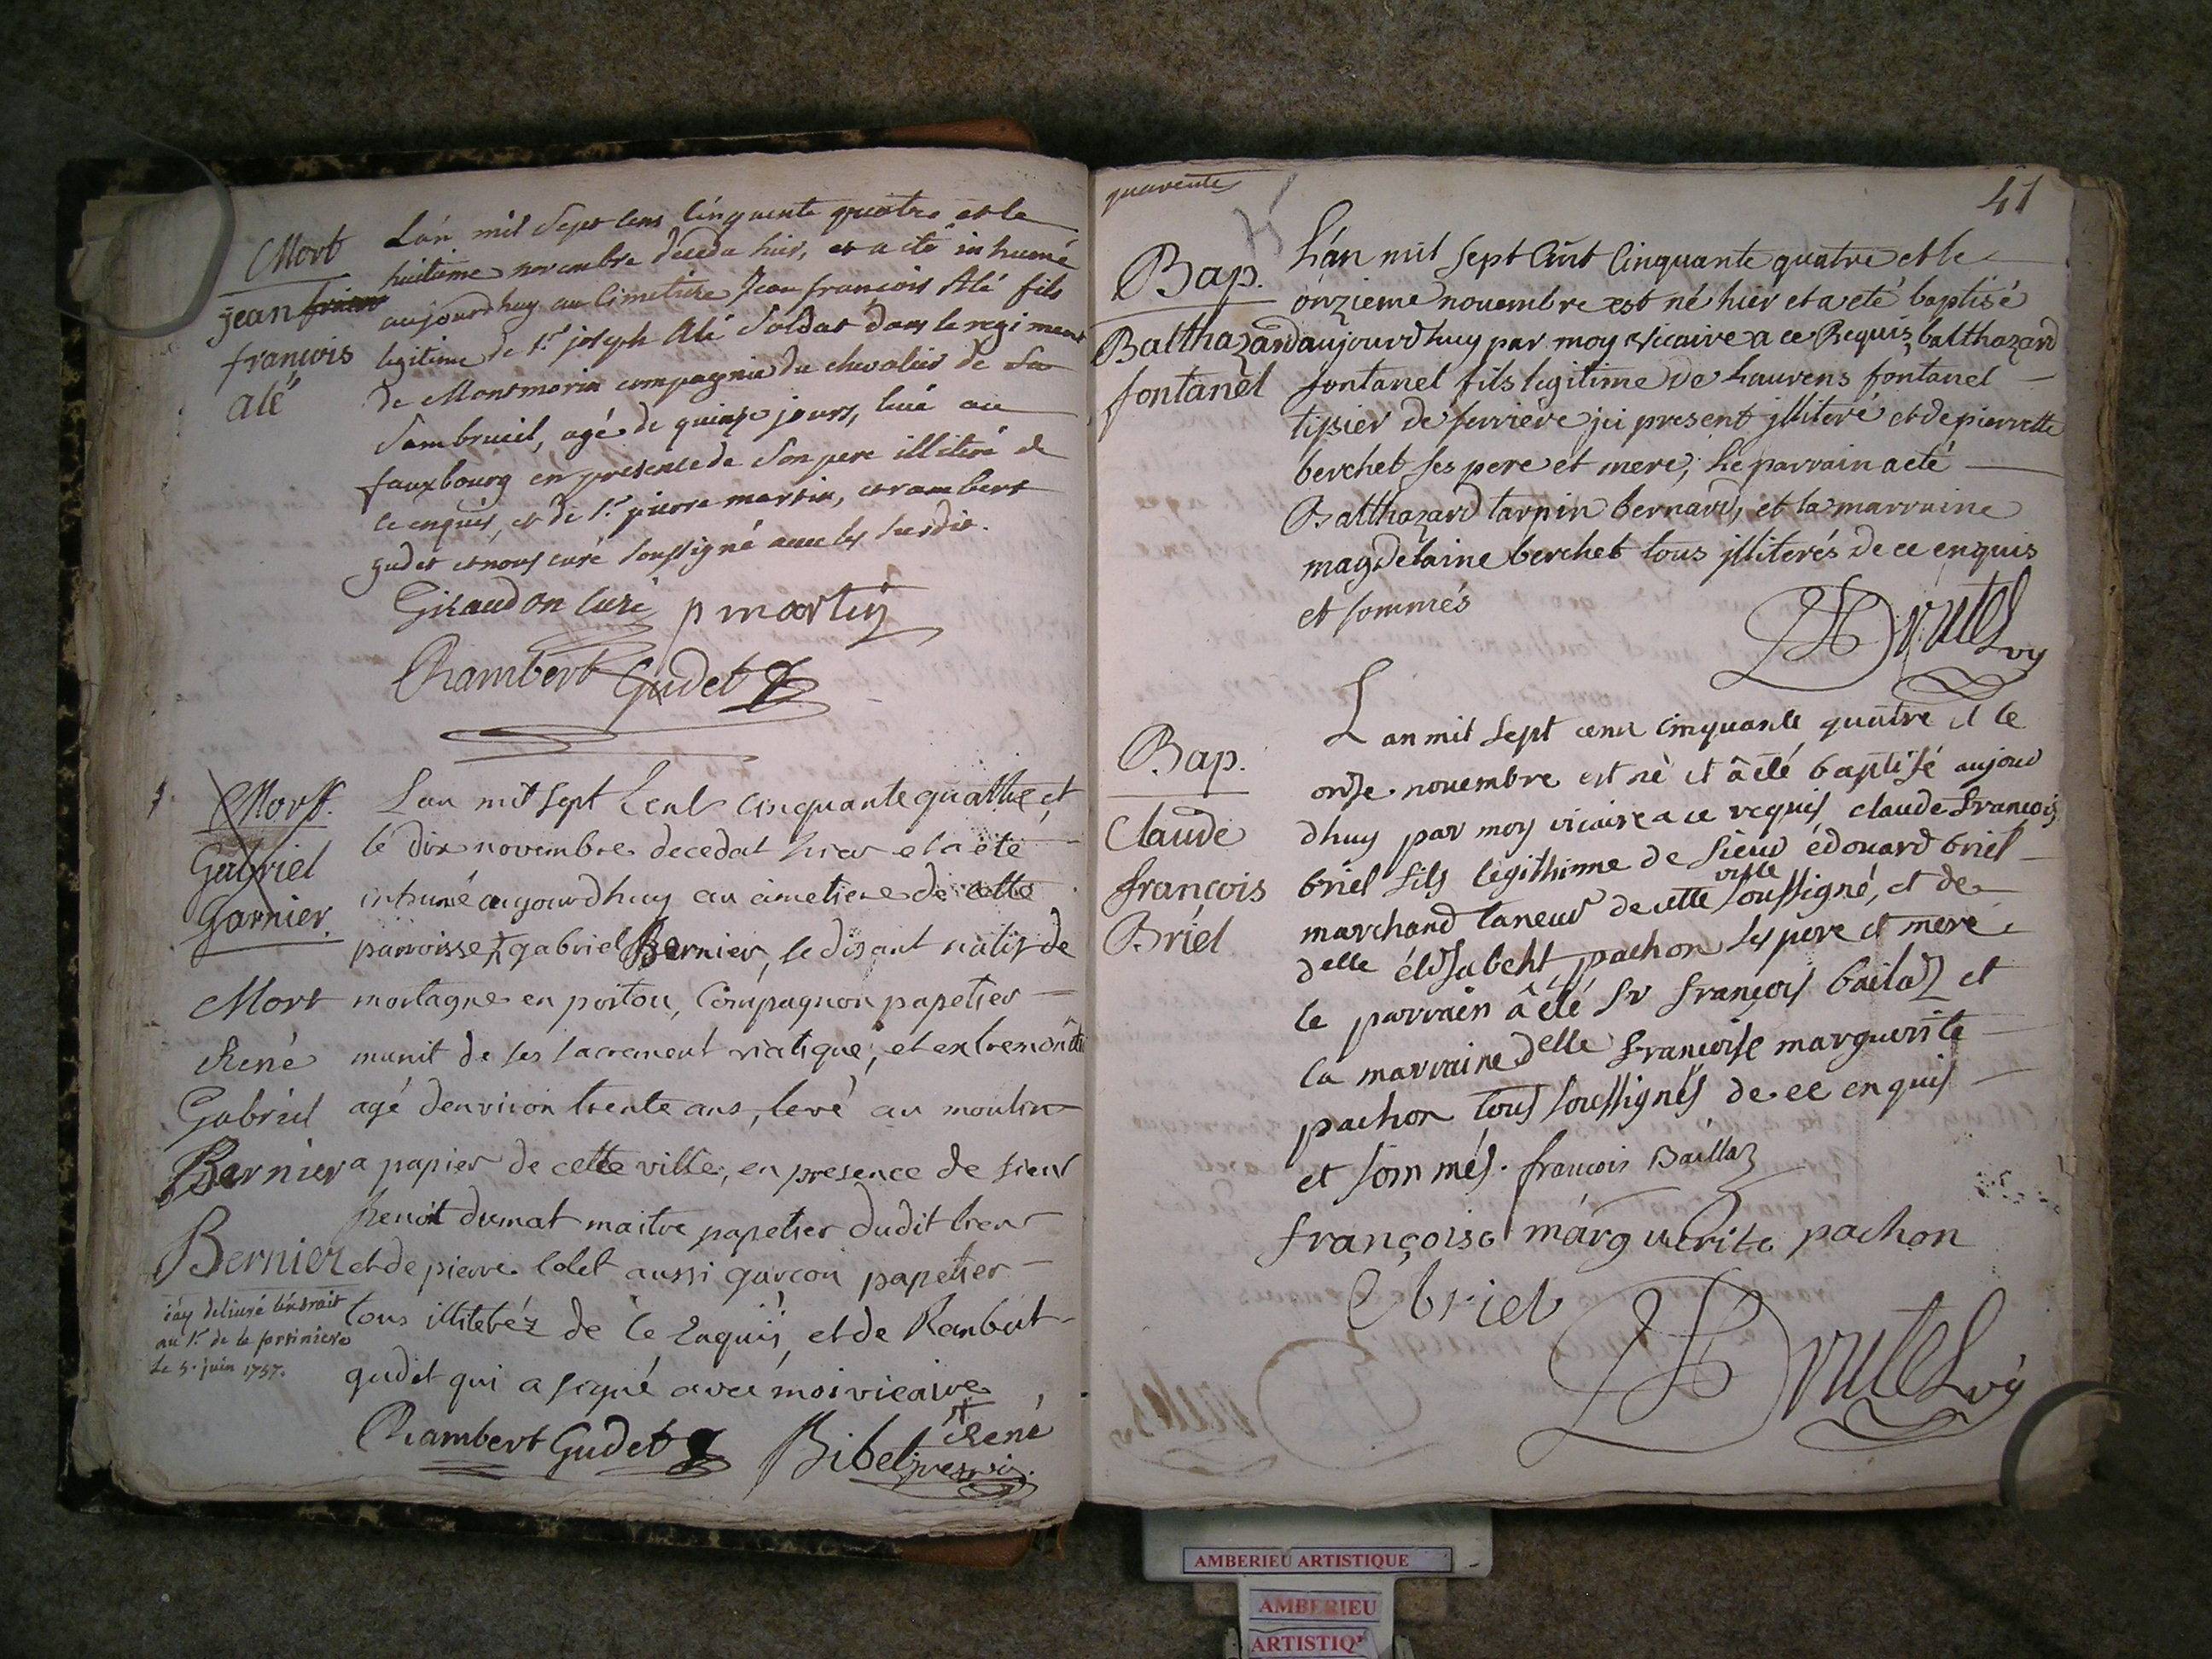 Mort
jean
francois
alé
L'an mil Sept Cens Cinquante quatre et le
huitieme novembre décéda hier, et a eté inhumé
aujourdhuy au Cimetiere Jean francois Alé fils
legitime de Sr joseph Alé Soldat dans le regiment
de Montmorin compagnie du chevalier de
Sambrueil, agé de quinze jours, levé au
fauxbourg en presence de Son pere illitéré de
ce enquis, et de Sr pierre martin, et rambert
gudet et nous curé Soussigné avec les susdit.
Giraudon Curé p martin
Rambert Gudet
Mort.
Gabriel
Garnier.
Mort
René
Gabriel
Bernier
Bernier
j'ay delivré l'éxtrait
au Sr de la
le 5. juin 1757.
Lan mil sept Cent cinquante quattre et
le dix novembre decedat hier et a été
inhumé aujourdhuy au cimetiere de cette
parroisse gabriel Bernier, se disant natif de
mortagne en poitou, Compagnon papetier
munit de ses sacrement viatique, et extremontion
agé denviron trente ans, levé au moulin
a papier de cette ville, en presence de sieur
Benoit dumat maitre papetier dudit lieu
et de pierre Colet aussi garcon papetier
tous illiteréz de ce Enquis, et de Rambert
gudet qui a signé avec moi vicaire
Rambert Gudet
René
Bibet
quarente
41
Bap.
Balthazard
fontanel
L'án mil Sept Cent Cinquante quatre et le
onzieme novembre est né hier et a eté baptisé
aujourdhuy par moy vicaire a ce Requis balthazard
fontanel fils legitime de Laurens fontanel
tissier de ferriere ici present illiteré et de pierrette
berchet ses pere et mere, Le parrain a eté
Balthazard tarpin bernard, et la marraine
magdelaine berchet tous illiterés de ce enquis
et sommés
Brutel vy
Bap.
Claude
françois
Briel
Lan mil sept cent cinquante quatre et le
onze novembre est né et â été baptisé aujour
dhuy par moy vicaire a ce requis claude francois
briel fils légithimme de sieur édouard briel
marchand taneur de cette ville soussigné, et de
delle élisabeht pachon ses pere et mere
le parrain â été sr françois bailaz et
la marraine delle françoise marguerite
pachon tous soussignés de ce enquis
et sommés. francois Baillaz
françoise marguerite pachon
Ebriel
Brutel vy
AMBERIEU ARTISTIQUE
AMBERIEU
ARTISTIQ